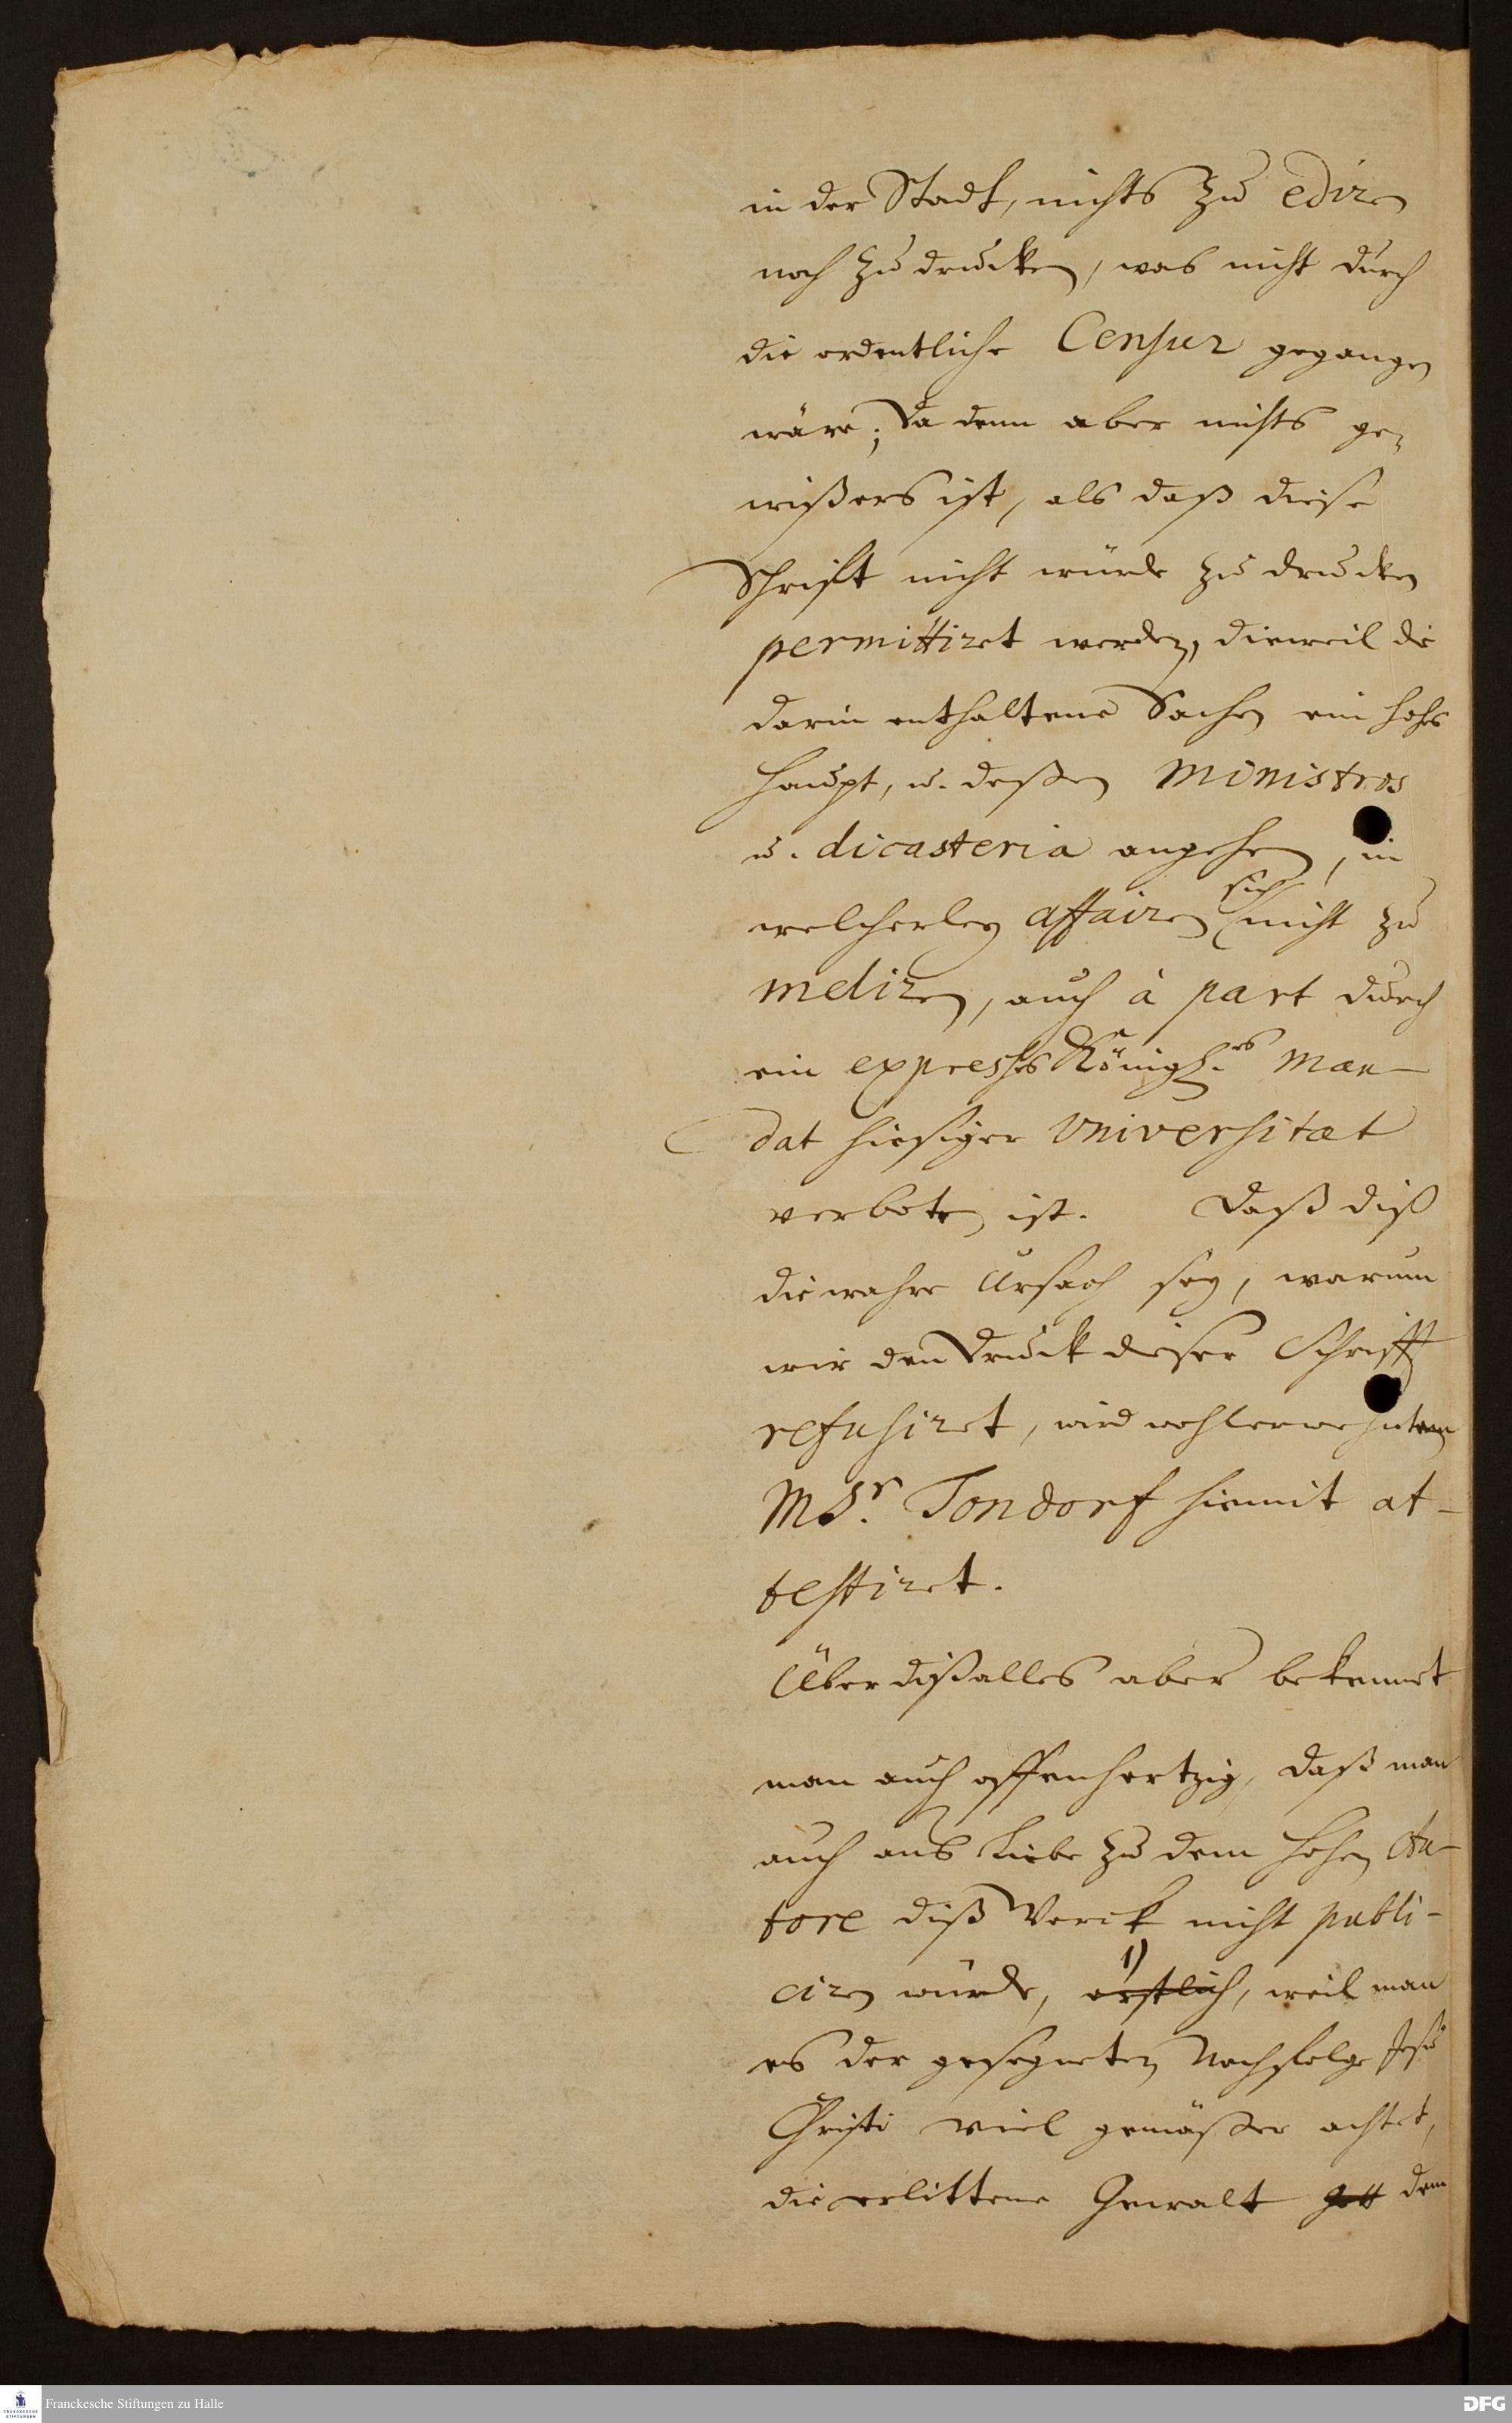 in der Stadt, nichts zu ediren
noch zu drucken, was nicht durch
die ordentliche Censur gegangen
wäre; Da denn aber nichts ge-
wißers ist, als daß diese
Schrift nicht würde zu drucken
permittiret werden, dieweil die
darin enthaltene Sachen ein hohes
Haupt, u. deßen Ministros
u. dicasteria angehen, in
welcherley affairen sich nicht zu
meliren, auch à part durch
ein expresses Königl.es Man-
dat hiesiger Universitæt
verboten ist. Daß diß
die wahre Ursach sey, warum
wir den Druck dieser Schrifft
refusiret, wird wohlerwehnten
Msr. Tondorf hiemit at-
testiret.
Über diß alles aber bekennet
man auch offenhertzig, daß man
auch aus Liebe zu dem hohen Au-
tore diß Werck nicht publi-
ciren würde, 1) erstlich, weil man
es der gesegneten Nachfolge Jesu
Christi viel gemäßer achtet,
die erlittene Gewalt Gott dem
Franckesche Stiftungen zu Halle
DFG